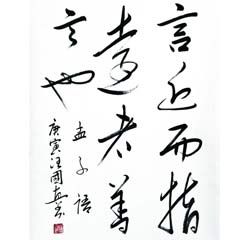 言近而指
遠者善
言也
孟子語
庚寅汪國真书